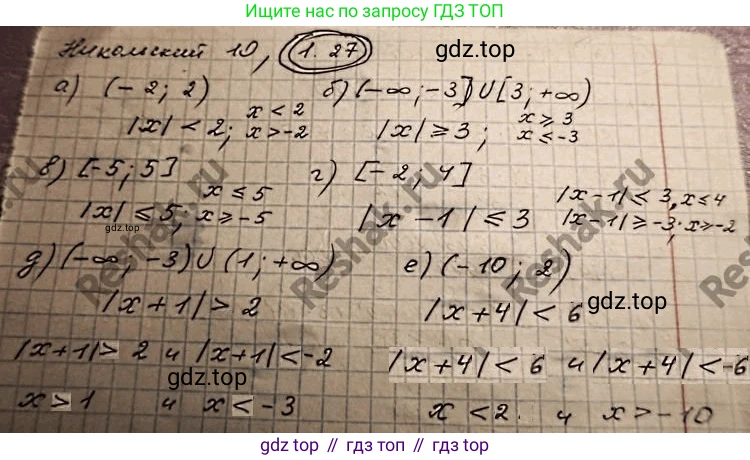 Ищите нас по запросу ГДЗ ТОП
Никольский 10, 1.27
gdz.top
а) (-2; 2)
|x| < 2; x < 2
x > -2
б) (-∞; -3] U [3; +∞)
|x| ≥ 3; x ≥ 3
x ≤ -3
в) [-5; 5]
|x| ≤ 5; x ≤ 5
x ≥ -5
gdz.top
г) [-2; 4]
|x-1| ≤ 3
|x-1| ≤ 3, x ≤ 4
|x-1| ≥ -3; x ≥ -2
Reshak.ru
Reshak.ru
Reshak.ru
д) (-∞; -3) U (1; +∞)
|x+1| > 2
|x+1| > 2 и |x+1| < -2
x > 1 и x < -3
gdz.top
е) (-10; 2)
|x+4| < 6
gdz.top
|x+4| < 6 и |x+4| < -6
x < 2 и x > -10
gdz.top // гдз.топ // gdz.top // гдз.топ